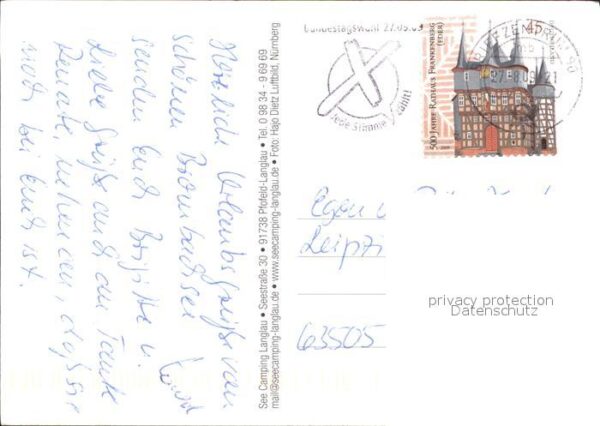 Herzliche Urlaubsgrüße vom
schönen Brombachsee
senden Euch Brigitte u.
Liebe Grüße auch an Tante
Renate, nehmen an, daß sie
noch bei Euch ist.
See Camping Langlau • Seestraße 30 • 91738 Pfofeld-Langlau • Tel. 0 98 34 - 9 69 69
mail@seecamping-langlau.de • www.seecamping-langlau.de • Foto: Hajo Dietz Luftbild, Nürnberg
Bundestagswahl 27.09.09
Jede Stimme zählt!
BRIEFZENTRUM
45
500 JAHRE RATHAUS FRANKENBERG
(EDER)
Egon u
Leipzi
63505
privacy protection
Datenschutz